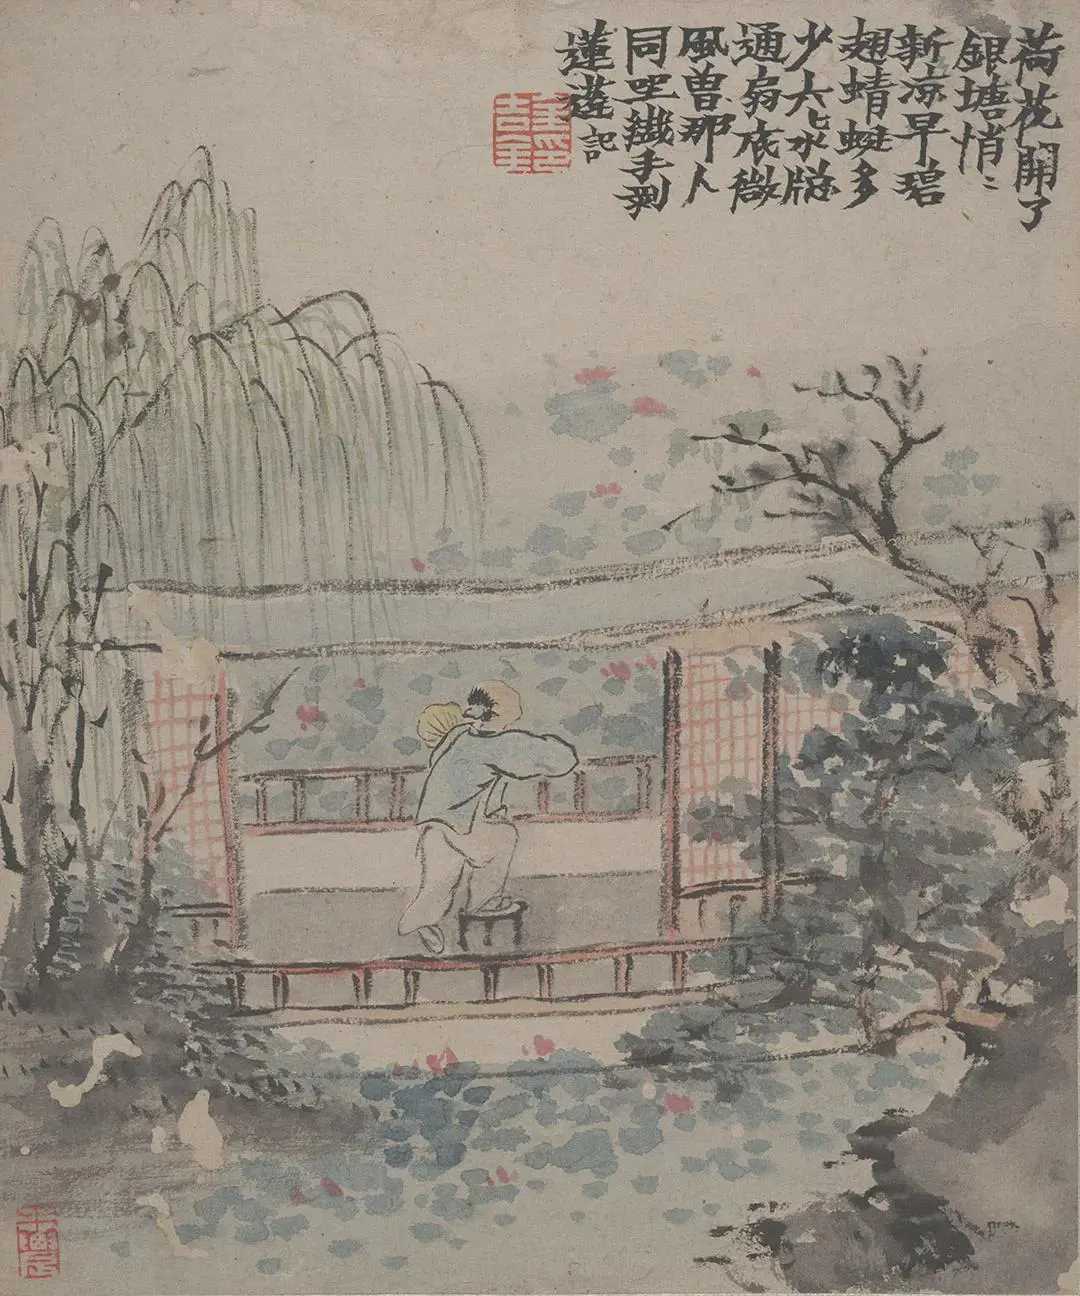 荷花開了
銀塘悄〻
新涼早碧
翅蜻蜓多
少六〻水牕
通扇底微
風曾那人
同坐纖手剥
蓮蓬記